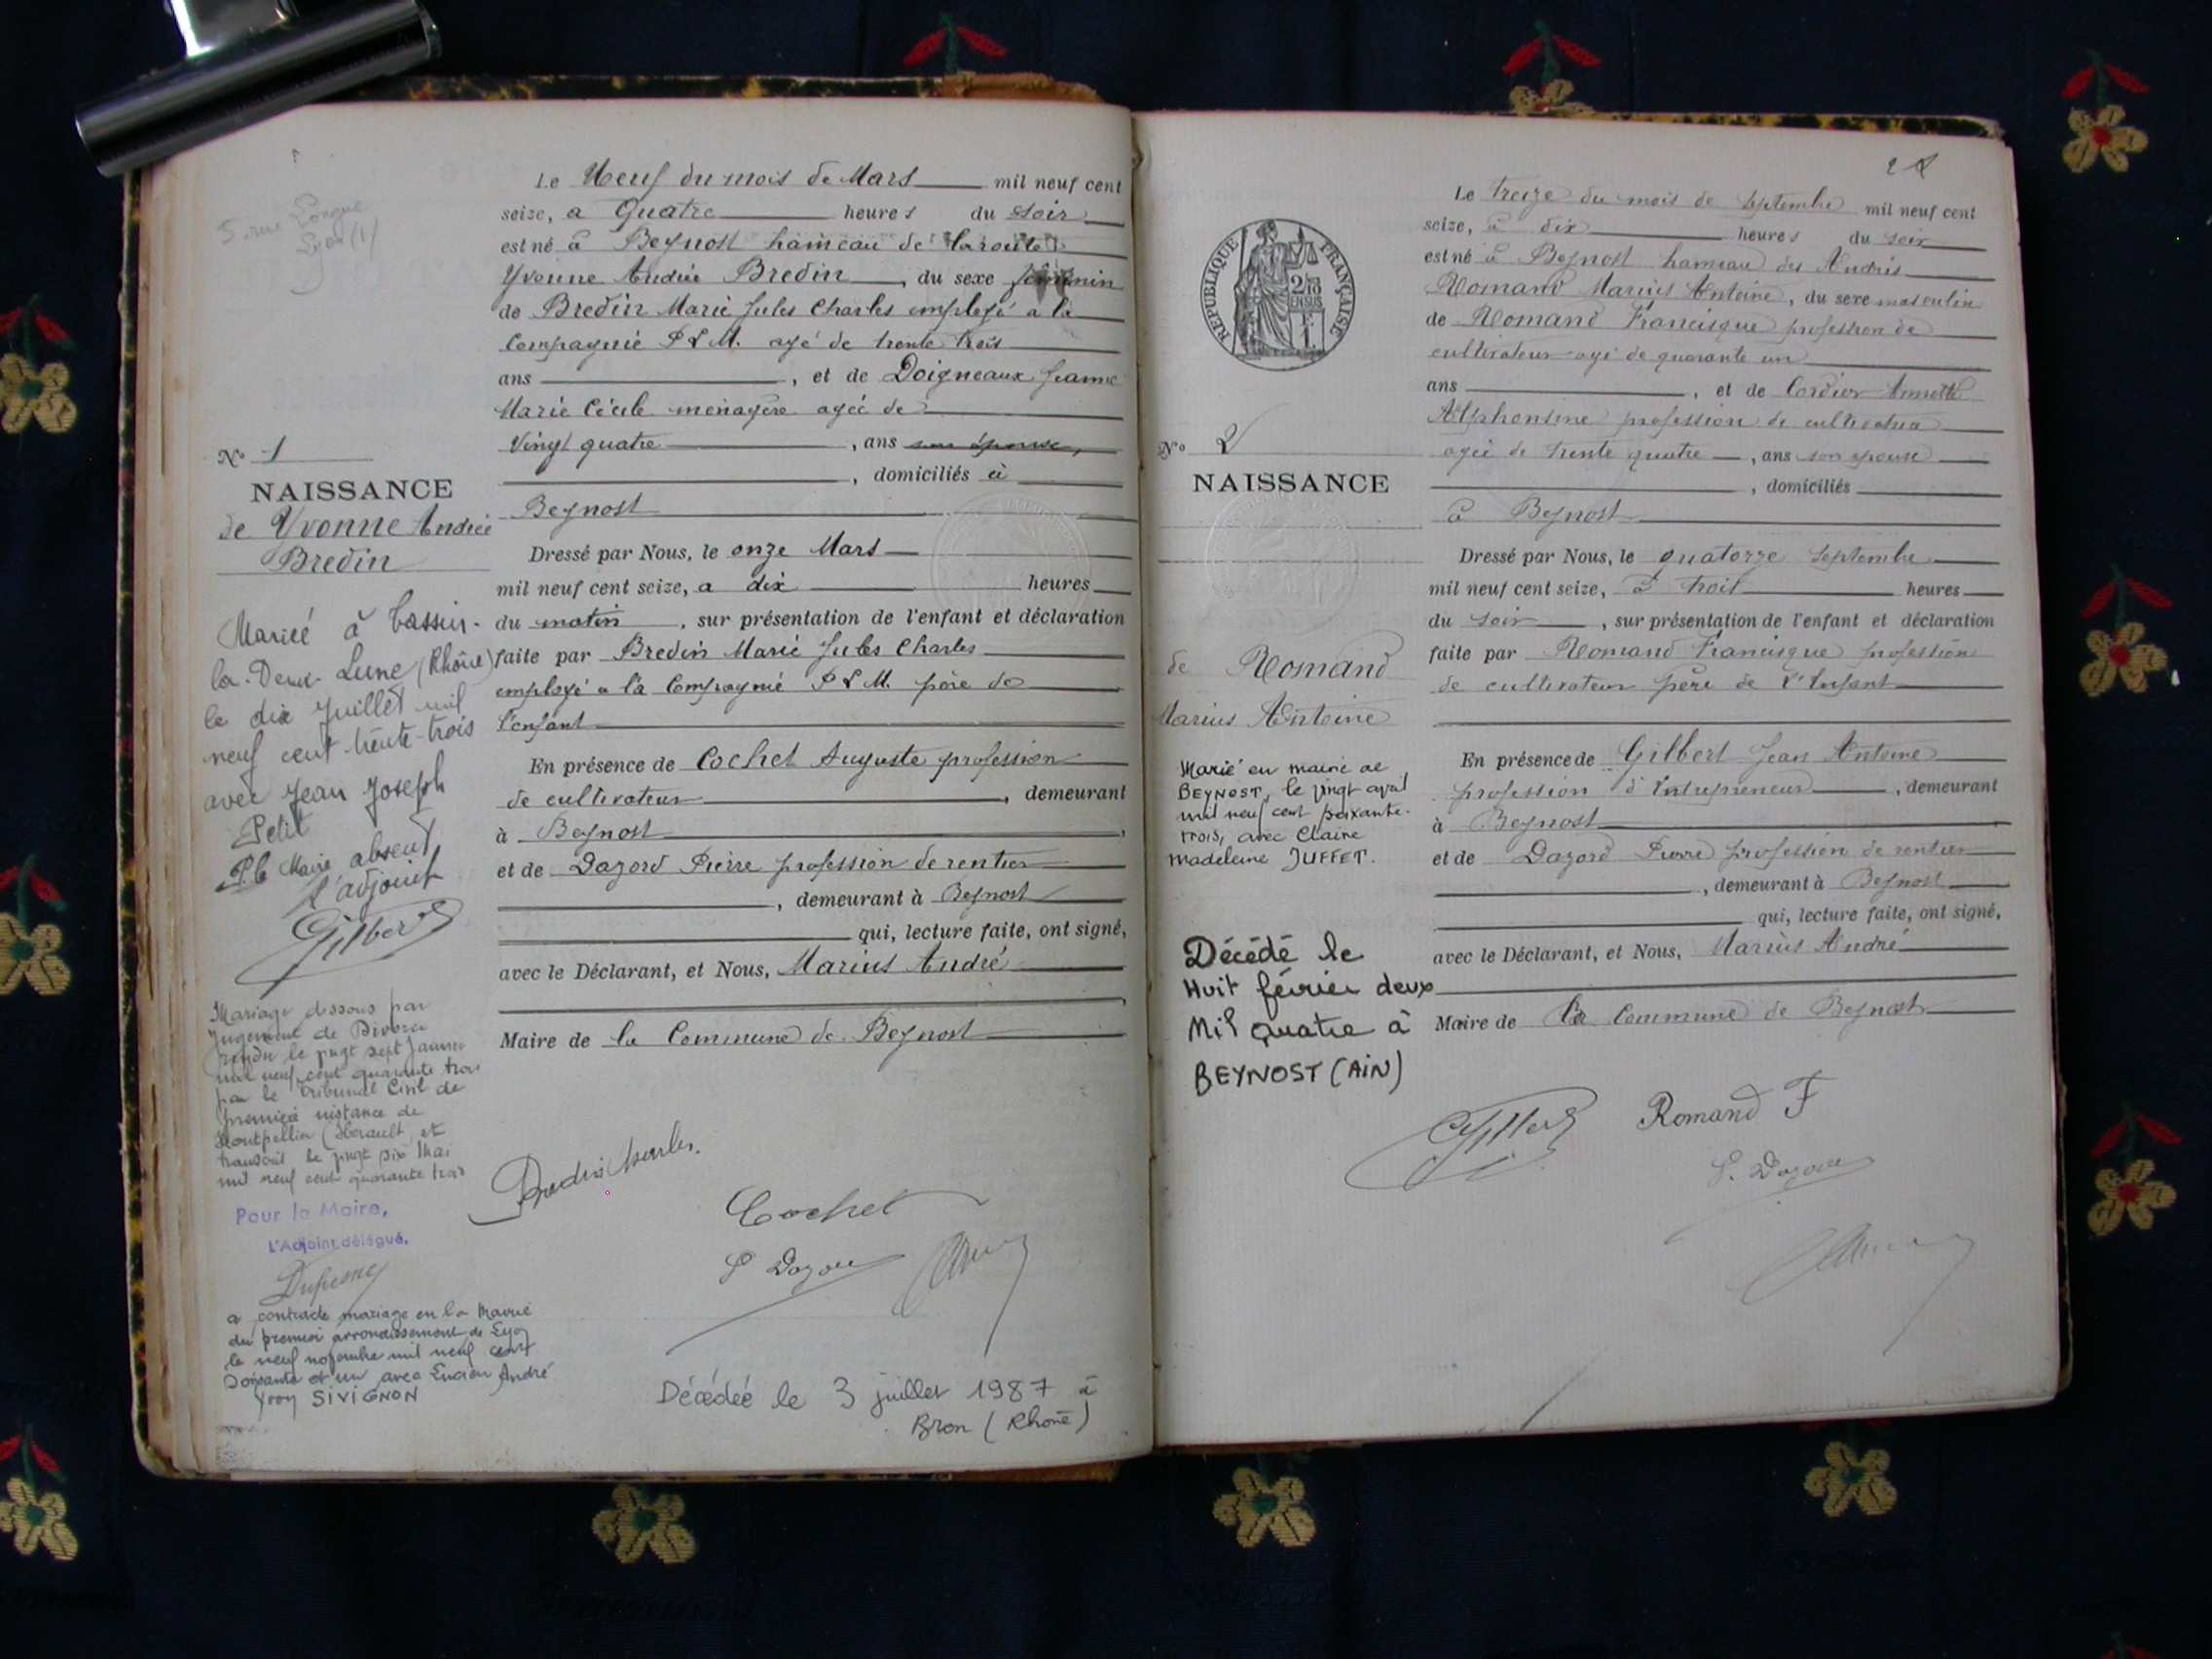 5 rue Longue
Lyon (1)
Le Neuf du mois de Mars mil neuf cent
seize, a Quatre heures du soir
est né à Beynost hameau de la route
Yvonne Andrée Bredin, du sexe féminin
de Bredin Marie Jules Charles employé a la
Compagnie P L M. agé de trente trois
ans, et de Doigneaux Jeanne
Marie Cécile menagère agée de
Vingt quatre, ans son épouse,
, domiciliés à
Beynost
Dressé par Nous, le onze Mars
mil neuf cent seize, a dix heures
du matin, sur présentation de l'enfant et déclaration
faite par Bredin Marie Jules Charles
employé a la Compagnie P L M. père de
l'enfant
En présence de Cochet Auguste profession
de cultivateur, demeurant
à Beynost,
et de Dazord Pierre profession de rentier
, demeurant à Beynost
qui, lecture faite, ont signé,
avec le Déclarant, et Nous, Marius André
Maire de la Commune de Beynost
Bredin Charles.
Cochet
P Dazord
Décédée le 3 juillet 1987 à
Bron (Rhône)
No 1
NAISSANCE
de Yvonne Andrée
Bredin
Mariée à Tassin-
la-Demi-Lune (Rhône)
le dix Juillet mil
neuf cent trente-trois
avec Jean Joseph
Petit
P. le Maire absent
L'adjoint
Gilbert
Mariage dissous par
Jugement de Divorce
rendu le vingt sept Janvier
mil neuf cent quarante trois
par le Tribunal Civil de
première instance de
Montpellier (Herault) et
transcrit le vingt six Mai
mil neuf cent quarante trois
Pour le Maire,
L'Adjoint délégué,
a contracté mariage en la Mairie
du premier arrondissement de Lyon
le neuf novembre mil neuf cent
soixante et un avec Lucien André
Yvon SIVIGNON
2
Le treize du mois de septembre mil neuf cent
seize, à dix heures du soir
est né à Beynost hameau des Andrés
Romand Marius Antoine, du sexe masculin
de Romand Francisque profession de
cultivateur agé de quarante un
ans, et de Cordier Annette
Alphonsine profession de cultivatrice
agée de trente quatre, ans son épouse
, domiciliés
à Beynost
Dressé par Nous, le quatorze septembre
mil neuf cent seize, à trois heures
du soir, sur présentation de l'enfant et déclaration
faite par Romand Francisque profession
de cultivateur père de l'Enfant
En présence de Gilbert Jean Antoine
profession d'Entrepreneur, demeurant
à Beynost,
et de Dazord Pierre profession de rentier
, demeurant à Beynost
qui, lecture faite, ont signé,
avec le Déclarant, et Nous, Marius André
Maire de la Commune de Beynost
Gilbert
Romand F
P. Dazord
REPUBLIQUE FRANÇAISE
No 2
NAISSANCE
de Romand
Marius Antoine
Marié en mairie de
BEYNOST, le vingt avril
mil neuf cent soixante-
trois, avec Claire
Madeleine JUFFET.
Décédé le
Huit février deux
Mil quatre à
BEYNOST (AIN)